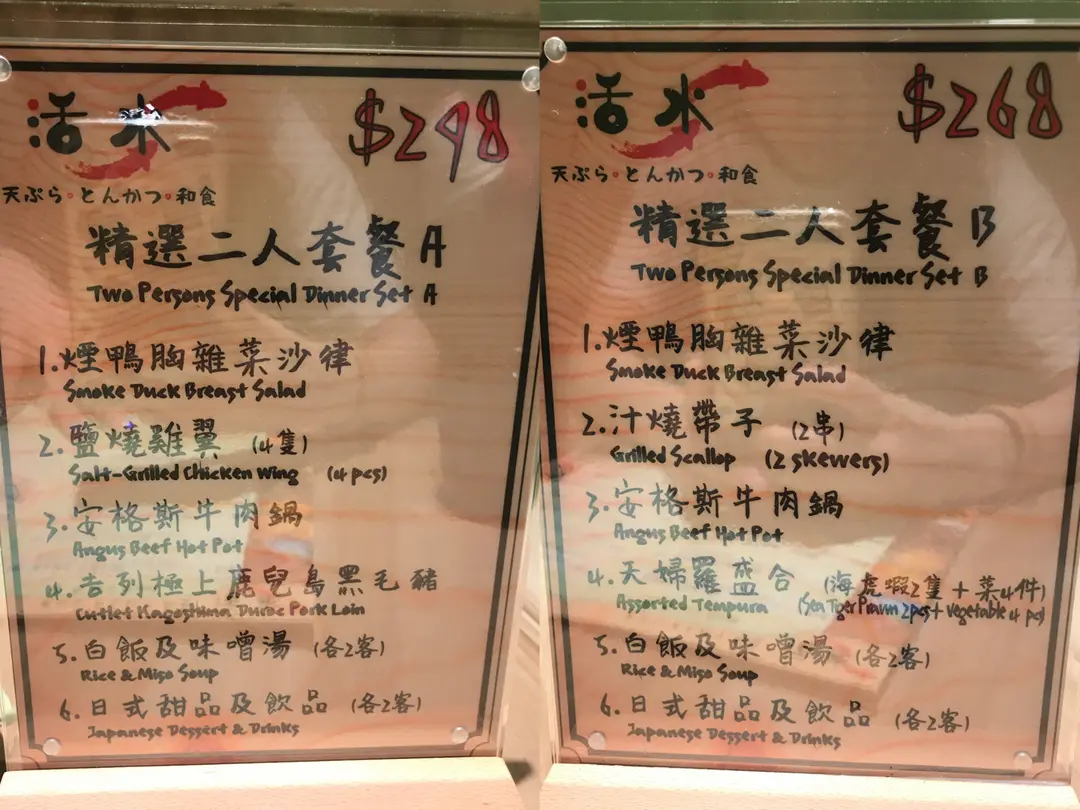 活水
$298
天ぷら・とんかつ・和食
精選二人套餐A
Two Persons Special Dinner Set A
1.煙鴨胸雜菜沙律
Smoke Duck Breast Salad
2.鹽燒雞翼 (4隻)
Salt-Grilled Chicken Wing (4 pcs)
3.安格斯牛肉鍋
Angus Beef Hot Pot
4.吉列極上鹿兒島黑毛豬
Cutlet Kagoshima Duroc Pork Loin
5.白飯及味噌湯 (各2客)
Rice & Miso Soup
6.日式甜品及飲品 (各2客)
Japanese Dessert & Drinks
活水
$268
天ぷら・とんかつ・和食
精選二人套餐B
Two Persons Special Dinner Set B
1.煙鴨胸雜菜沙律
Smoke Duck Breast Salad
2.汁燒帶子 (2串)
Grilled Scallop (2 skewers)
3.安格斯牛肉鍋
Angus Beef Hot Pot
4.天婦羅盛合 (海虎蝦2隻+菜4件)
Assorted Tempura (Sea Tiger Prawn 2pcs + Vegetable 4 pcs)
5.白飯及味噌湯 (各2客)
Rice & Miso Soup
6.日式甜品及飲品 (各2客)
Japanese Dessert & Drinks